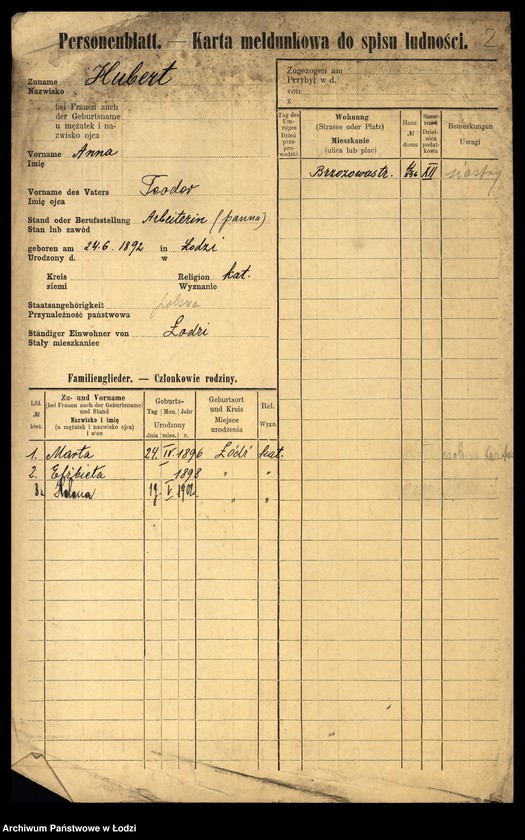 Personenblatt. — Karta meldunkowa do spisu ludności.
2
Zuname
Nazwisko
Hubert
bei Frauen auch
der Geburtsname
u mężatek i na-
zwisko ojca
Vorname Anna
Imię
Vorname des Vaters Teodor
Imię ojca
Stand oder Berufsstellung Arbeiterin (panna)
Stan lub zawód
geboren am 24.6. 1892 in Łodzi
Urodzony d. w
Kreis Religion kat.
ziemi Wyznanie
Staatsangehörigkeit
Przynależność państwowa
polska
Ständiger Einwohner von Łodzi
Stały mieszkaniec
Zugezogen am
Przybył w d.
von
z
Tag des Um-zuges Dzień prze-prowadzki
Wohnung
(Strasse oder Platz)
Mieszkanie
(ulica lub plac)
Haus № domu
Dziel-nica podat-kowa
Bemerkungen
Uwagi
Brzozowastr. XII siostry
Familienglieder. — Członkowie rodziny.
Lfd. № bież.
Zu- und Vorname
(bei Frauen auch der Geburtsname
und Stand
Nazwisko i imię
(u mężatek i nazwisko ojca)
i stan
Geburts-
Tag Mon. Jahr
Urodzony
dnia mies. r.
Geburtsort
und Kreis
Miejsce
urodzenia
Rel.
Wyzn.
1. Marta 24 IV 1896 Łódź kat.
2. Elżbieta 1898 " "
3. Helena 19 V 1902 " "
Archiwum Państwowe w Łodzi